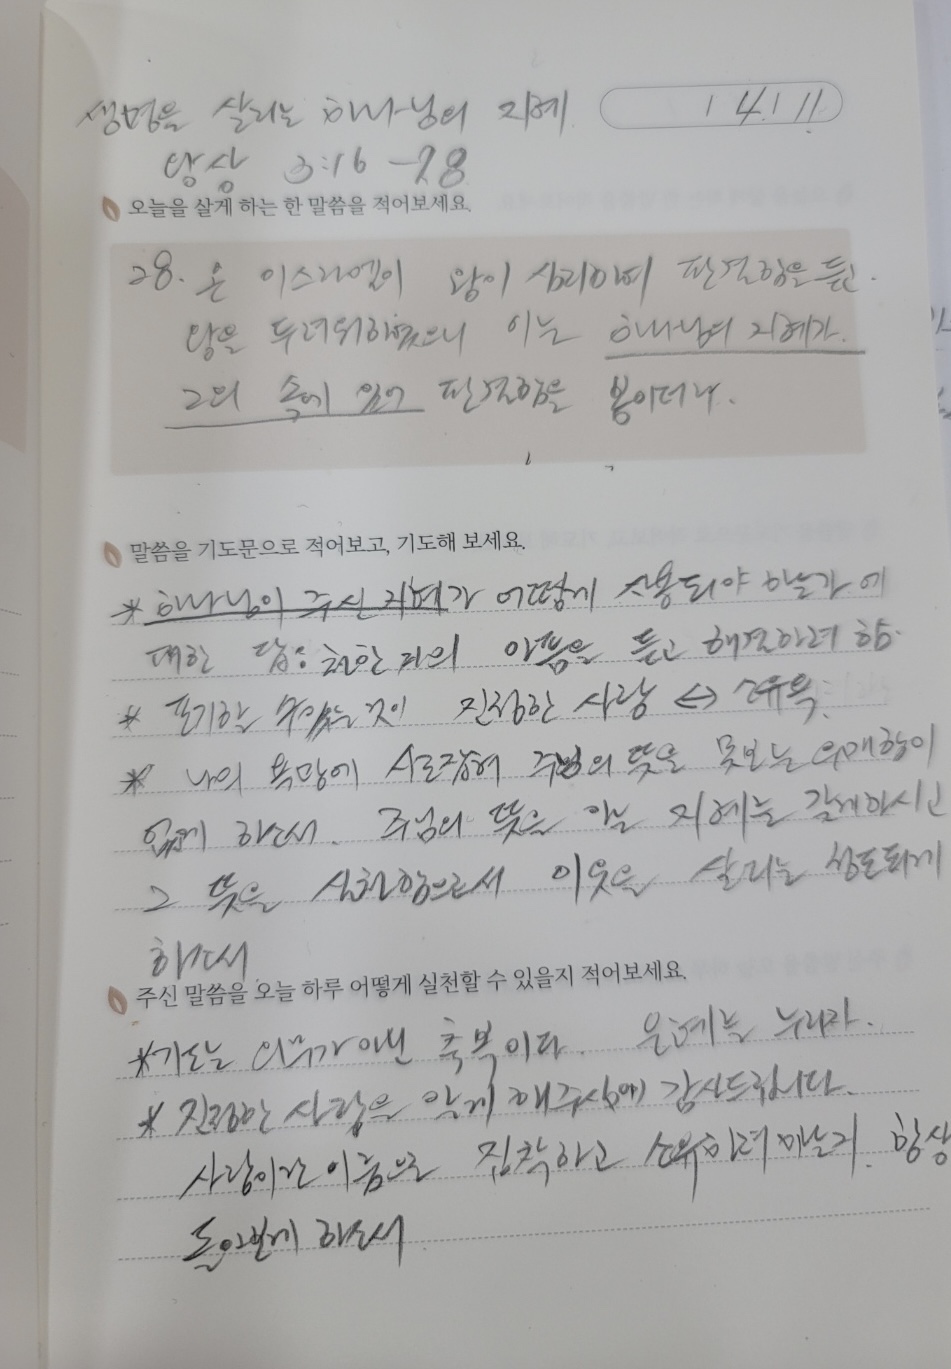 생명을 살리는 하나님의 지혜
1 4.1 11.
왕상 3:16 -28
오늘을 살게 하는 한 말씀을 적어보세요.
28. 온 이스라엘이 왕이 심리하여 판결함을 듣고.
왕을 두려워하였으니 이는 하나님의 지혜가.
그의 속에 있어 판결함을 봄이더라.
말씀을 기도문으로 적어보고, 기도해 보세요.
* 하나님이 주신 지혜가 어떻게 사용되야 하는가에
대한 답: 천한 자의 아픔을 듣고 해결하려 함.
* 포기할 수 있는 것이 진정한 사랑 ↔ 소유욕.
* 나의 욕망에 사로잡혀 주님의 뜻을 못보는 우매함이
없게 하소서. 주님의 뜻을 아는 지혜를 길러하시고
그 뜻을 실천함으로서 이웃을 살리는 청도되게
하소서
주신 말씀을 오늘 하루 어떻게 실천할 수 있을지 적어보세요.
*기도는 의무가 아닌 축복이다. 은혜를 누리자.
* 진정한 사랑을 알게 해주심에 감사드립니다.
사랑이란 이름으로 집착하고 소유하려 하는지. 항상
돌아보게 하소서